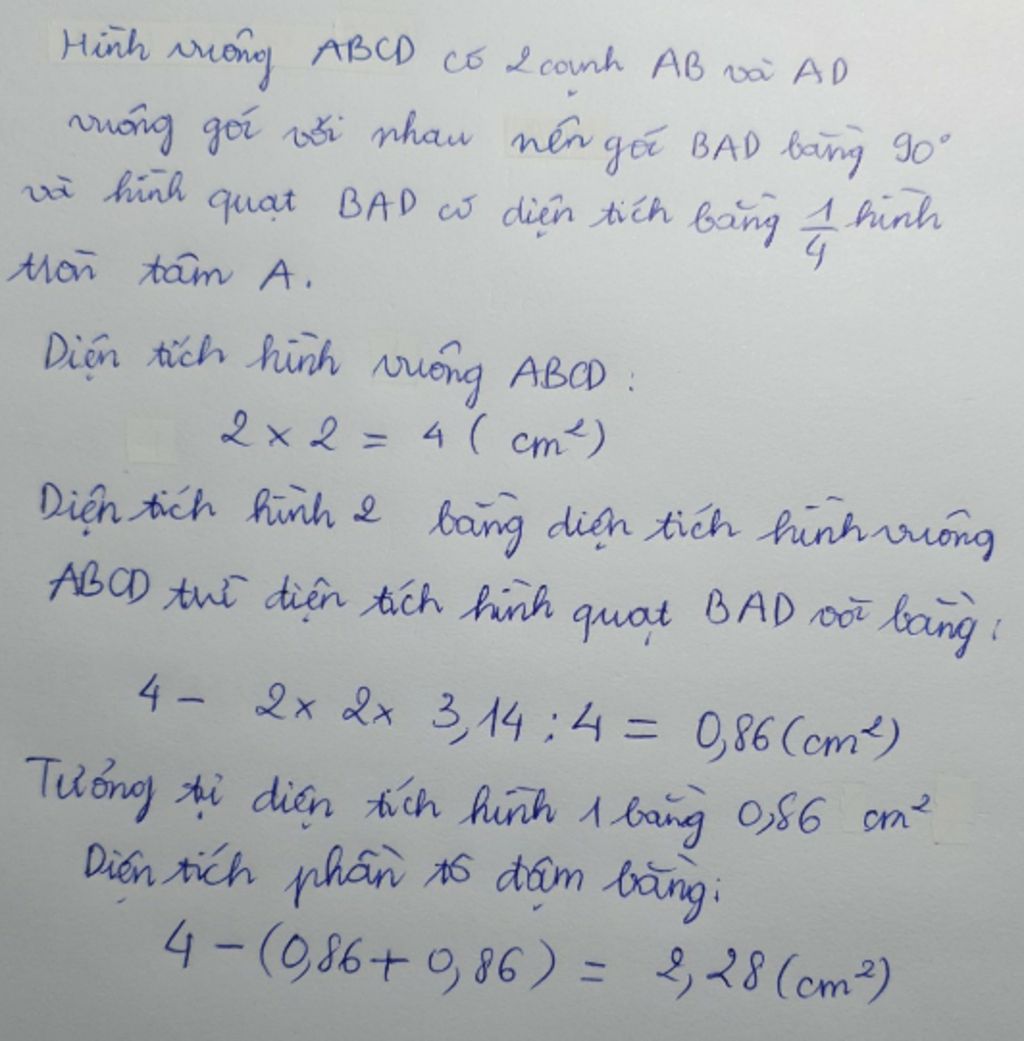 Hình vuông ABCD có 2 cạnh AB và AD
vuông góc với nhau nên góc BAD bằng 90°
và hình quạt BAD có diện tích bằng 1/4 hình
tròn tâm A.
Diện tích hình vuông ABCD :
2 × 2 = 4 ( cm²)
Diện tích hình 2 bằng diện tích hình vuông
ABCD trừ diện tích hình quạt BAD và bằng :
4 - 2 × 2 × 3,14 : 4 = 0,86 (cm²)
Tương tự diện tích hình 1 bằng 0,86 cm²
Diện tích phần tô đậm bằng :
4 - (0,86 + 0,86) = 2,28 (cm²)